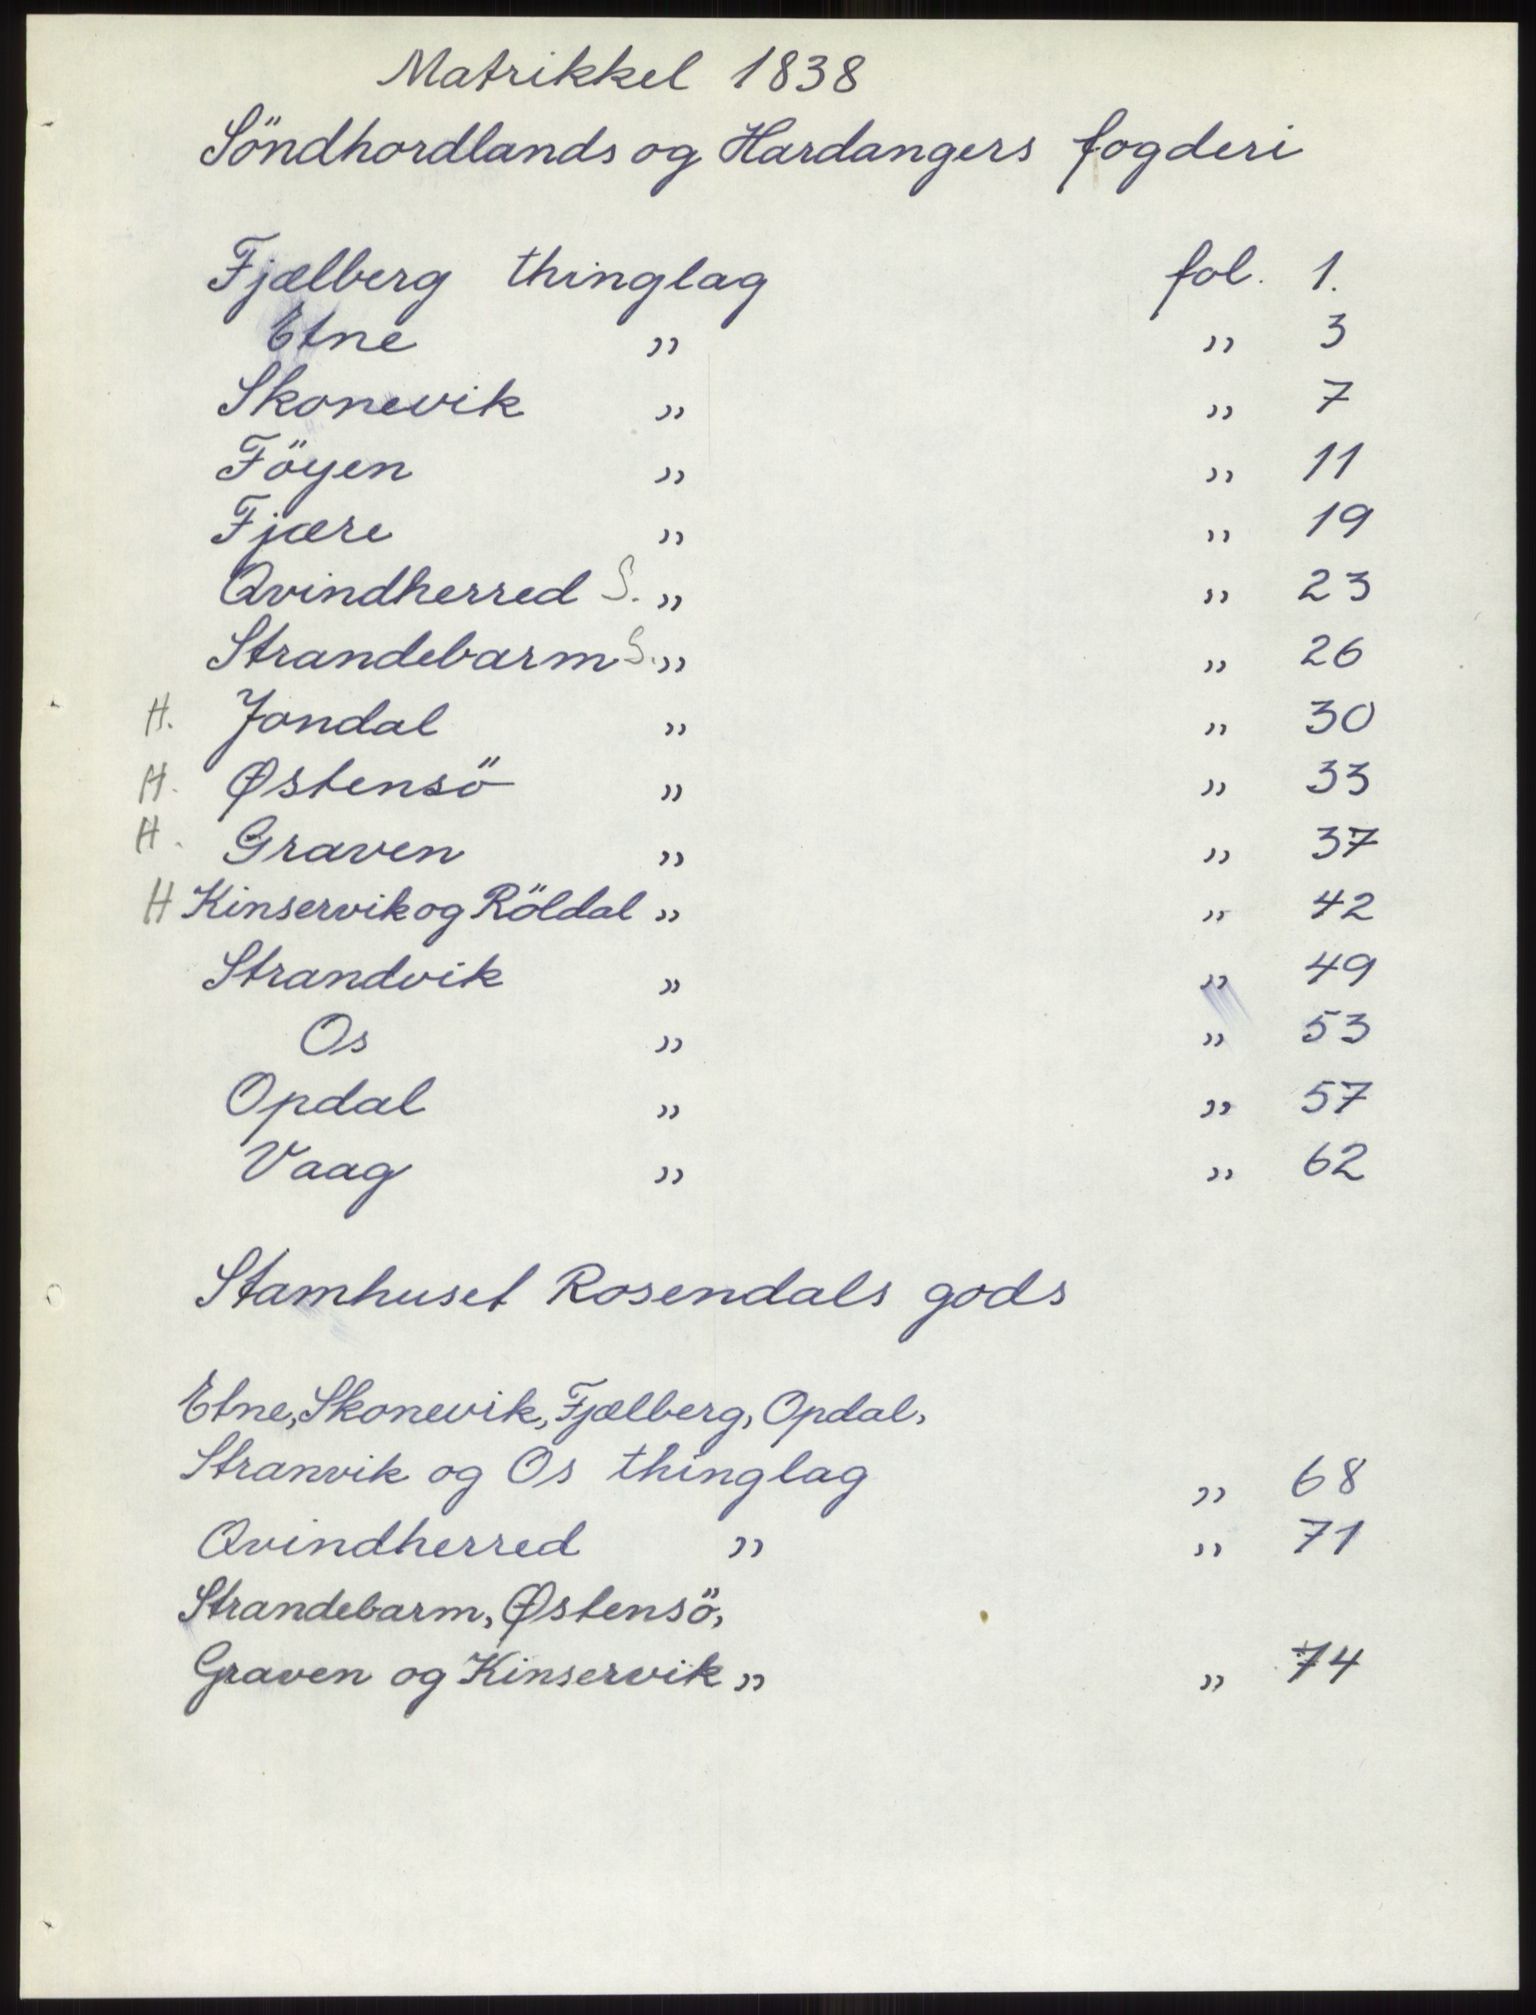 Matrikkel 1838
Söndhordlands og Hardangers fogderi
Fjælberg thinglag fol. 1.
Etne " " 3
Skonevik " " 7
Föyen " " 11
Fjære " " 19
Qvindherred S. " " 23
Strandebarm S. " " 26
H. Jondal " " 30
H. Østensö " " 33
H. Graven " " 37
H Kinservik og Röldal " " 42
Strandvik " " 49
Os " " 53
Opdal " " 57
Vaag " " 62
Stamhuset Rosendals gods
Etne, Skonevik, Fjælberg, Opdal,
Stranvik og Os thinglag " 68
Qvindherred " " 71
Strandebarm, Østensö,
Graven og Kinservik " " 74